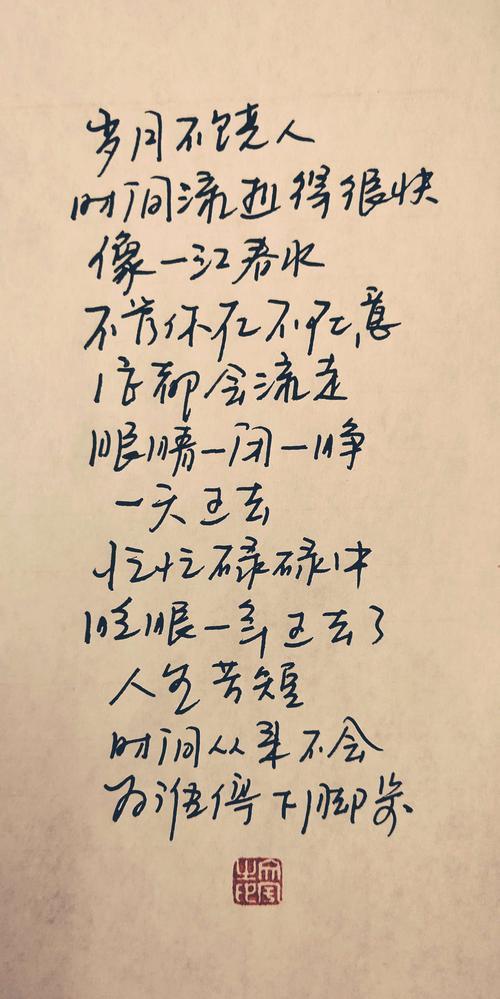 岁月不饶人
时间流逝得很快
像一江春水
不管你在不在意
它都会流走
眼睛一闭一睁
一天过去
忙忙碌碌中
眨眼一年过去了
人生苦短
时间从来不会
为谁停下脚步